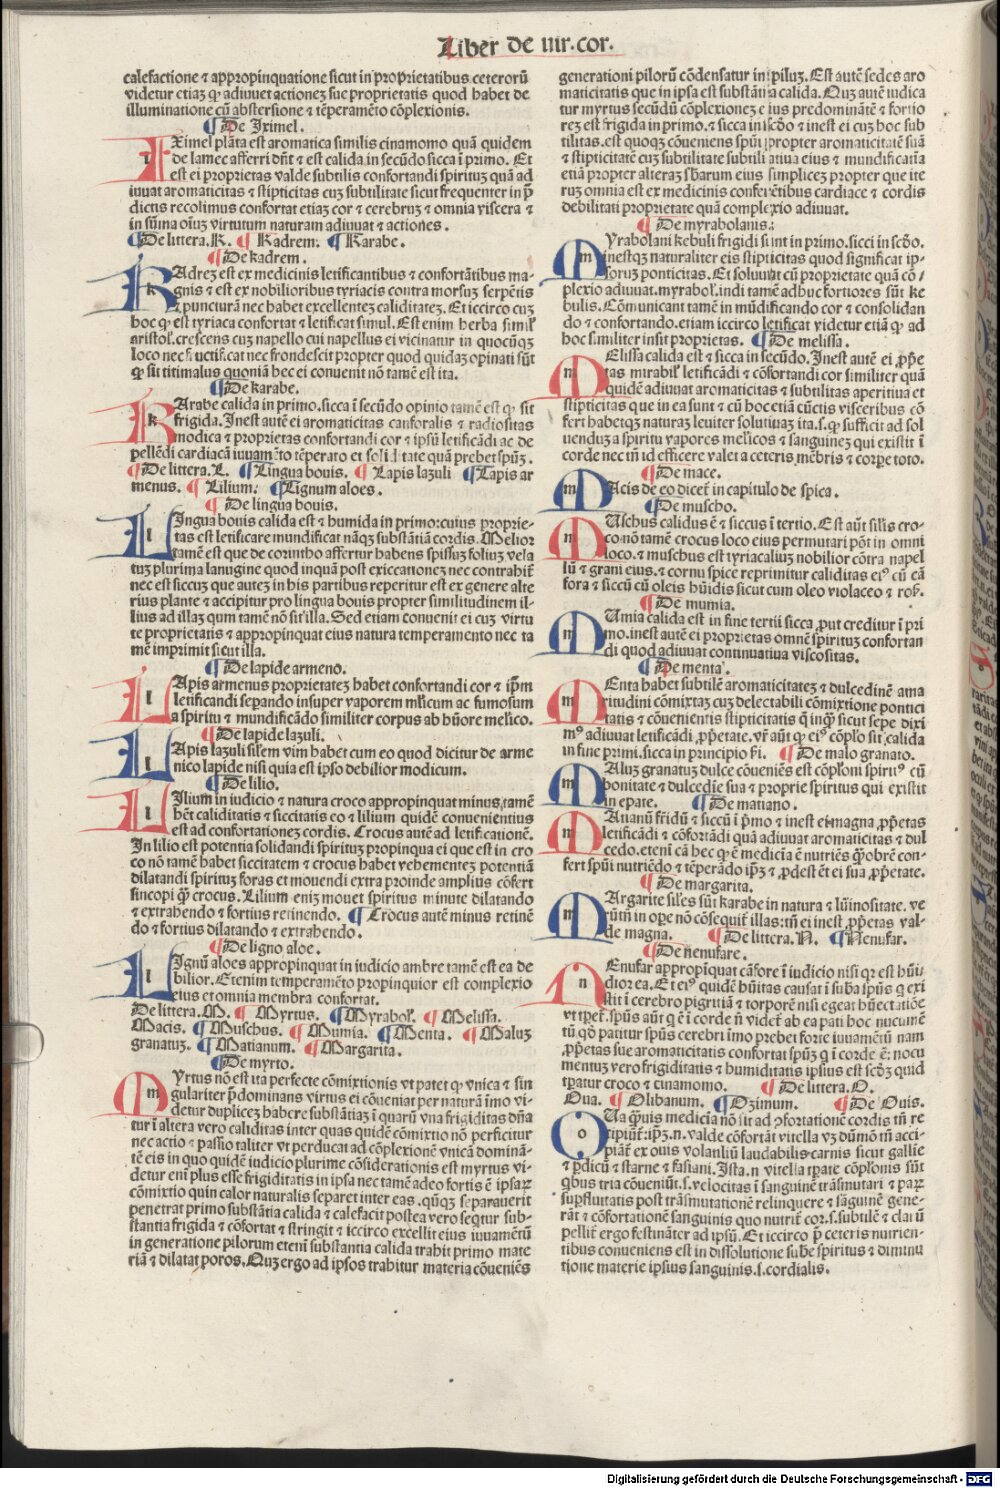 Liber de vir. cor.
calefactione ⁊ appropinquatione sicut in proprietatibus ceterorū
videtur etiaꝫ ꝙ adiuuet actioneꝫ sue proprietatis quod habet de
illuminatione cū abstersione ⁊ tēperamēto cōplexionis.
¶ De Iximel.
IXimel plāta est aromatica similis cinamomo quā quidem
de lamec afferri dn̄t ⁊ est calida in secūdo sicca ī primo. Et
est ei proprietas valde subtilis confortandi spirituꝫ quā ad
iuuat aromaticitas ⁊ stipticitas cuꝫ subtilitate sicut frequenter in p̄
dictis recolimus confortat etiaꝫ cor ⁊ cerebruꝫ ⁊ omnia viscera ⁊
in sūma oīuꝫ virtutum naturam adiuuat ⁊ actiones.
¶ De littera. K. ¶ Kadrem. ¶ Karabe.
¶ De kadrem.
KAdreꝫ est ex medicinis letificantibus ⁊ confortātibus ma-
gnis ⁊ est ex nobilioribus tyriacis contra morsuꝫ serpētis
⁊ puncturā nec habet excellentes caliditateꝫ. Et iccirco cuꝫ
hoc ꝙ est tyriaca confortat ⁊ letificat simul. Est enim herba simil'
aristol'. crescens cuꝫ napello cui napellus ei vicinatur in quocūqꝫ
loco nec fructificat nec frondescit propter quod quidaꝫ opinati sūt
ꝙ sit titimalus quoniā hec ei conuenit nō tamē est ita.
¶ De karabe.
KArabe calida in primo. sicca ī secūdo opinio tamē est ꝙ sit
frigida. Inest autē ei aromaticitas canforalis ⁊ radiositas
modica ⁊ proprietas confortandi cor ⁊ ipsū letificādi ac de
pellēdi cardiacā iuuamēto tēperato et soliditate quā prebet spūꝫ.
¶ De littera. L. ¶ Lingua bouis. ¶ Lapis lazuli ¶ Lapis ar
menus. ¶ Lilium. ¶ Lignum aloes.
¶ De lingua bouis.
LIngua bouis calida est ⁊ humida in primo: cuius proprie-
tas est letificare mundificat nāqꝫ substātiā cordis. Melior
tamē est que de corintho affertur habens spissuꝫ foliuꝫ vela
tuꝫ plurima lanugine quod inquā post exiccationeꝫ nec contrahit̄
nec est siccuꝫ que auteꝫ in his partibus reperitur est ex genere alte
rius plante ⁊ accipitur pro lingua bouis propter similitudinem il-
lius ad illaꝫ qum tamē nō sit illa. Sed etiam conuenit ei cuꝫ virtu
te proprietatis ⁊ appropinquat eius natura temperamento nec ta
mē imprimit sicut illa.
¶ De lapide armeno.
LApis armenus proprietateꝫ habet confortandi cor ⁊ ip̄m
letificandi sepando insuper vaporem mel'icum ac fumosum
a spiritu ⁊ mundificādo similiter corpus ab hūore mel'ico.
¶ De lapide lazuli.
LApis lazuli sil'em vim habet cum eo quod dicitur de arme
nico lapide nisi quia est ipso debilior modicum.
¶ De lilio.
LIlium in iudicio ⁊ natura croco appropinquat minus. tamē
hēt caliditatis ⁊ siccitatis eo ⁊ lilium quidē conuenientius
est ad confortationeꝫ cordis. Crocus autē ad letificationē.
In lilio est potentia solidandi spirituꝫ propinqua ei que est in cro
co nō tamē habet siccitatem ⁊ crocus habet vehementeꝫ potentiā
dilatandi spirituꝫ foras et mouendi extra proinde amplius cōfert
sincopi qꝫ crocus. Lilium eniꝫ mouet spiritus minute dilatando
⁊ extrahendo ⁊ fortius retinendo. ¶ Crocus autē minus retinē
do ⁊ fortius dilatando ⁊ extrahendo.
¶ De ligno aloe.
LIgnū aloes appropinquat in iudicio ambre tamē est ea de
bilior. Etenim temperamēto propinquior est complexio
eius et omnia membra confortat.
De littera. M. ¶ Myrtus. ¶ Myrabol'. ¶ Melissa.
Macis. ¶ Muschus. ¶ Mumia. ¶ Menta. ¶ Maluꝫ
granatuꝫ. ¶ Matianum. ¶ Margarita.
¶ De myrto.
MYrtus nō est ita perfecte cōmixtionis vt patet ꝙ vnica ⁊ sin
gulariter p̄dominans virtus ei cōueniat per naturā īmo vi-
detur dupliceꝫ habere substātiaꝫ ī quarū vna frigiditas dn̄a
tur ī altera vero caliditas inter quas quidē cōmixtio nō perficitur
nec actio ⁊ passio taliter vt perducat ad cōplexionē vnicā dominā-
tē eis in quo quidē iudicio plurime cōsiderationis est myrtus vi-
detur enī plus esse frigiditatis in ipsa nec tamē adeo fortis ē ipsaꝝ
cōmixtio quin calor naturalis separet inter eas. quūqꝫ separauerit
penetrat primo substātia calida ⁊ calefacit postea vero seqtur sub-
stantia frigida ⁊ cōfortat ⁊ stringit ⁊ iccirco excellit eius iuuamētū
in generatione pilorum etenī substantia calida trahit primo mate
riā ⁊ dilatat poros. Quꝫ ergo ad ipsos trahitur materia cōueniēs
generationi pilorū cōdensatur in pilum. Est autē sedes aro
maticitatis que in ipsa est substātia calida. Quꝫ autē iudica
tur myrtus secūdū cōplexioneꝫ eius predominātē ⁊ fortio
reꝫ est frigida in primo. ⁊ sicca in scd̄o ⁊ inest ei cuꝫ hoc sub
tilitas. est quoqꝫ cōueniens spūi propter aromaticitatē suā
⁊ stipticitatē cuꝫ subtilitate subtiliatiua eius ⁊ mundificatiā
etiā propter alteraꝫ sb̄arum eius simpliceꝫ propter que ite
ruꝫ omnia est ex medicinis conferētibus cardiace ⁊ cordis
debilitati proprietate quā complexio adiuuat.
¶ De myrabolanis.
MYrabolani kebuli frigidi sunt in primo. sicci in scd̄o.
inestqꝫ naturaliter eis stipticitas quod significat ip-
soruꝫ ponticitas. Et soluunt cū proprietate quā cō-
plexio adiuuat. myrabol'. indi tamē adhuc fortiores sūt ke
bulis. Cōmunicant tamē in mūdificando cor ⁊ consolidan
do ⁊ confortando. etiam iccirco letificat videtur etiā ꝙ ad
hoc similiter insit proprietas. ¶ De melissa.
MElissa calida est ⁊ sicca in secūdo. Inest autē ei ꝓprie
tas mirabil' letificādi ⁊ cōfortandi cor similiter quā
quidē adiuuat aromaticitas ⁊ subtilitas aperitiua et
stipticitas que in ea sunt ⁊ cū hoc etiā cūctis visceribus cō
fert habetqꝫ naturaꝫ leuiter solutiuaꝫ ita. s. ꝙ sufficit ad sol
uenduꝫ a spiritu vapores mel'icos ⁊ sanguineꝫ qui existit ī
corde nec in id efficere valet a ceteris mēbris ⁊ corpe toto.
¶ De mace.
MAcis de eo dicet̄ in capitulo de spica.
¶ De muscho.
MUschus calidus ē ⁊ siccus ī tertio. Est aūt sil'is cro-
co nō tamē crocus loco eius permutari pōt in omni
loco. ⁊ muschus est tyriacaliuꝫ nobilior cōtra napel
lū ⁊ grani eius. ⁊ cornu spice reprimitur caliditas eiꝰ cū cā
fora ⁊ siccū cū oleis hūidis sicut cum oleo violaceo ⁊ ros̄.
¶ De mumia.
MUmia calida est in fine tertii sicca ꝓut creditur ī pri
mo. inest autē ei proprietas omnē spirituꝫ confortan
di quod adiuuat continuatiua viscositas.
¶ De menta.
MEnta habet subtilē aromaticitateꝫ ⁊ dulcedinē ama
ritudini cōmixtaꝫ cuꝫ delectabili cōmixtione pontici
tatis ⁊ cōuenientis stipticitatis ꝙ īnqꝫ sicut sepe dixi
mꝰ adiuuat letificādi ꝓprietate. vr̄ aūt ꝙ eiꝰ cōplo sit calida
in fine primi. sicca in principio s̄i. ¶ De malo granato.
MAluꝫ granatuꝫ dulce cōueniēs est cōploni spirituꝰ cū
bonitate ⁊ dulcedīe sua ⁊ proprie spiritus qui existit
in epate. ¶ De matiano.
MAtianū fridū ⁊ siccū ī p̄mo ⁊ inest ei magna ꝓprietas
letificādi ⁊ cōfortādi quā adiuuat aromaticitas ⁊ dul
cedo. etenī cā hec ꝙ ē medicīa ē nutriēs qꝫobrē con-
fert spūi nutriēdo ⁊ tēperādo ipꝫ ⁊ ꝓdest ēt ei sua ꝓprietate.
¶ De margarita.
MArgarite sil'es sūt karabe in natura ⁊ lūinositate. ve
rūtn̄ in ope nō cōsequit̄ illas: tn̄ ei inest ꝓprietas val-
de magna. ¶ De littera. N. ¶ Nenufar.
¶ De nenufare.
NEnufar appropīquat cāfore ī iudicio nisi qꝛ est hūi-
dior ea. Et eiꝰ quidē hūitas causat ī suba spūs ꝙ exi
stit ī cerebro pigritiā ⁊ torporē nisi egeat hūectatiōe
vt tp̄et̄. spūs aūt ꝙ ē ī corde n̄ videt̄ ab ea pati hoc nocumē
tū ꝙ patitur spūs cerebri īmo prebet forte iuuamētū nam
ꝓprietas sue aromaticitatis confortat spūꝫ ꝙ ī corde ē: nocu
mentuꝫ vero frigiditatis ⁊ humiditatis ipsius est scd̄ꝫ quid
tp̄atur croco ⁊ cinamomo. ¶ De littera. O.
Oua. ¶ Olibanum. ¶ Ozimum. ¶ De Ouis.
OUa qꝫuis medicīa nō sit ad ꝯfortationē cordis tn̄ re
cipiūt̄ ipꝫ. n. valde cōfortāt vitella vꝫ dūmō tn̄ acci-
piāt̄ ex ouis volatiliū laudabilis carnis sicut galline
⁊ perdicū ⁊ starne ⁊ fasiani. Ista. n. vitella tp̄ate cōplonis sūt
qbus tria cōueniūt. s. velocitas ī sanguinē trāsmutari ⁊ paꝝ
suꝑfluitatis post trāsmutationē relinquere ⁊ sāguinē gene-
rāt ⁊ cōfortationē sanguinis quo nutrit̄ cor. s. subtilē ⁊ clarū
pellit̄ ergo festināter ad ipsū. Et iccirco p̄ ceteris nutrien-
tibus conueniens est in dissolutione sube spiritus ⁊ diminu
tione materie ipsius sanguinis. s. cordialis.
Digitalisierung gefördert durch die Deutsche Forschungsgemeinschaft - DFG